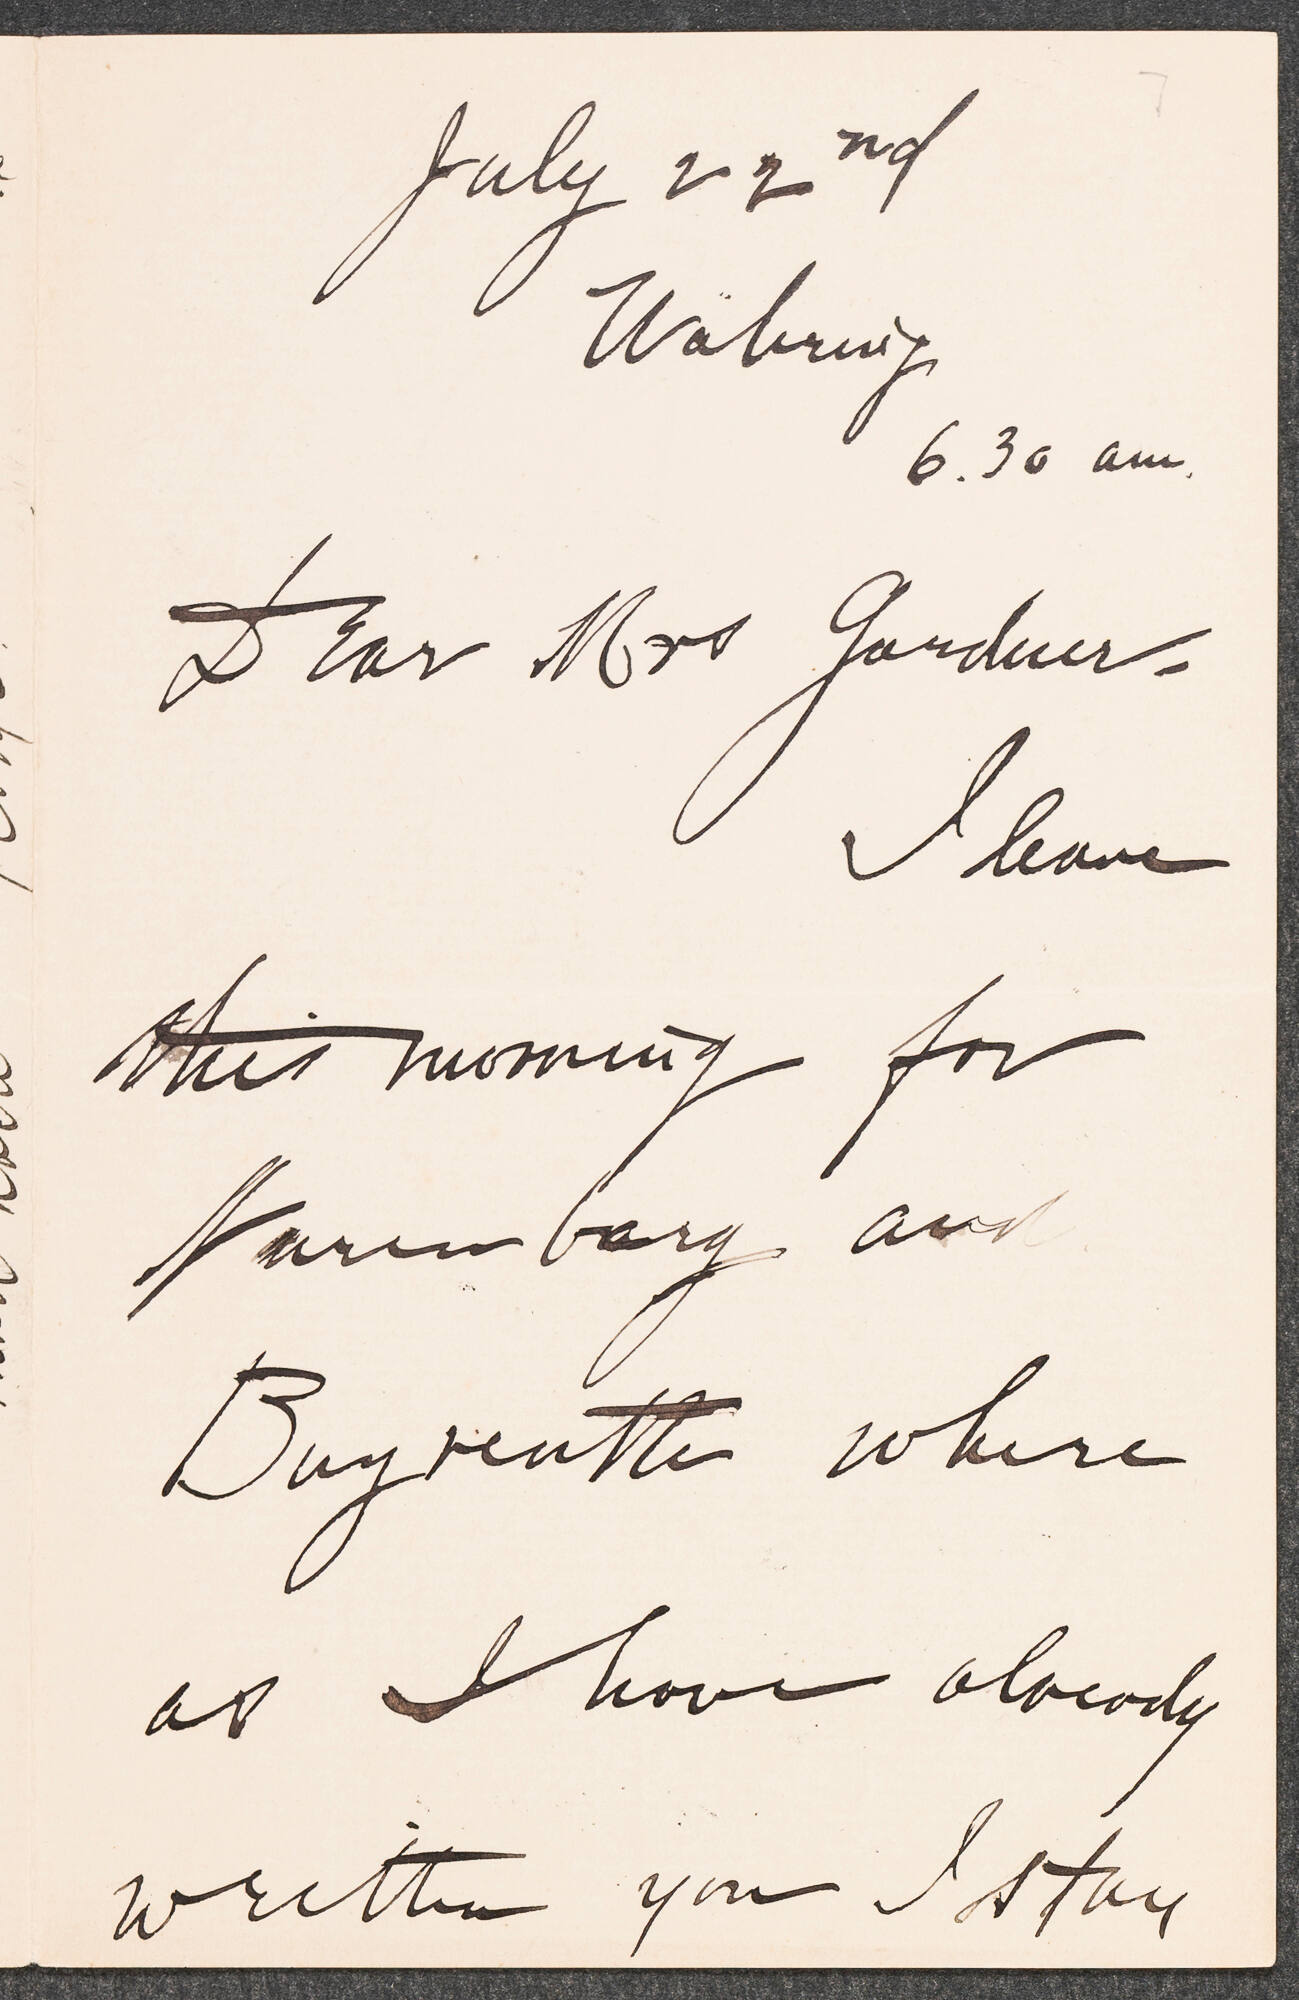 July 22nd
Währing
6.30 am.
Dear Mrs Gardner -
I leave
this morning for
Nuremburg and
Bayreuth where
as I have already
written you I stay